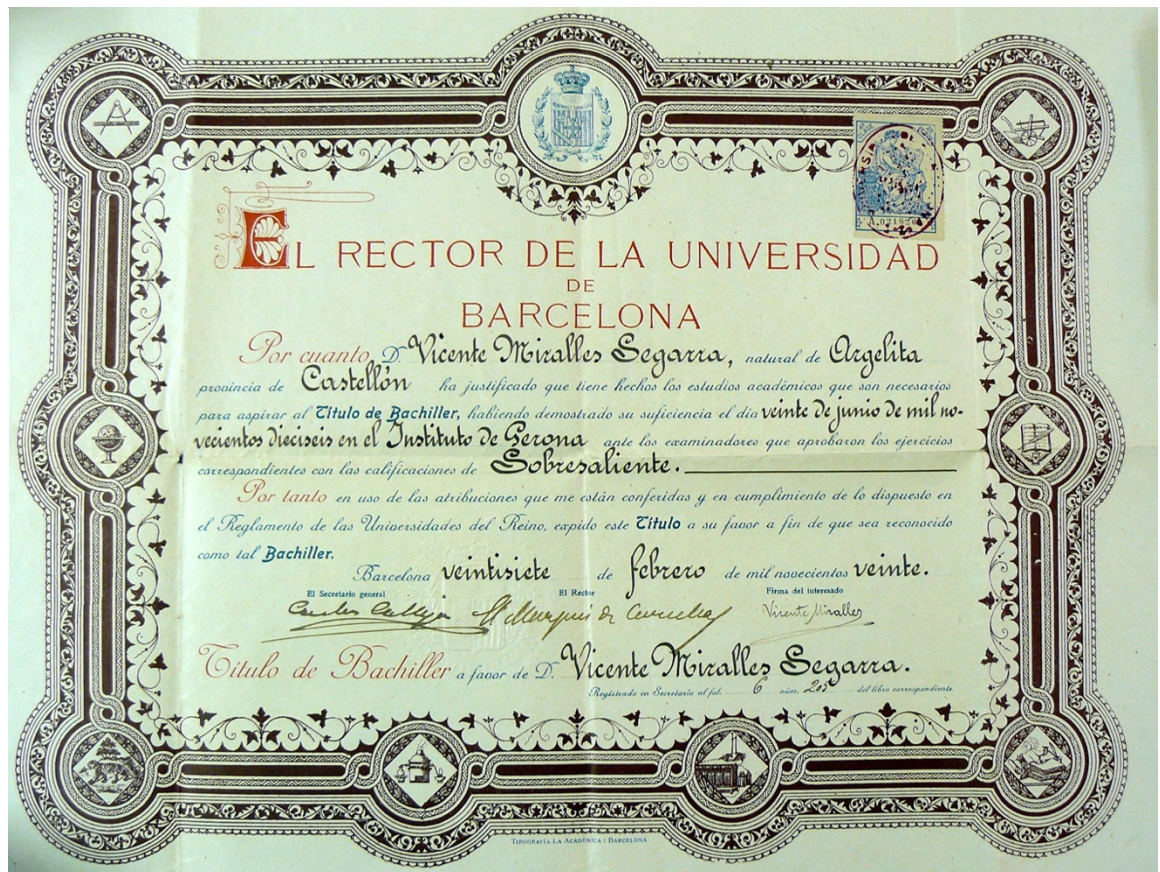 EL RECTOR DE LA UNIVERSIDAD
DE
BARCELONA
Por cuanto D. Vicente Miralles Segarra, natural de Argelita
provincia de Castellón ha justificado que tiene hechos los estudios académicos que son necesarios
para aspirar al Título de Bachiller, habiendo demostrado su suficiencia el día veinte de junio de mil no-
vecientos dieciseis en el Instituto de Gerona ante los examinadores que aprobaron los ejercicios
correspondientes con las calificaciones de Sobresaliente.
Por tanto en uso de las atribuciones que me están conferidas y en cumplimiento de lo dispuesto en
el Reglamento de las Universidades del Reino, expido este Título a su favor a fin de que sea reconocido
como tal Bachiller.
Barcelona veintisiete de febrero de mil novecientos veinte.
El Secretario general El Rector Firma del interesado
Carlos Calleja El Marqués de Vicente Miralles
Título de Bachiller a favor de D. Vicente Miralles Segarra.
Registrado en Secretaría al fol. 6 núm. 205 del libro correspondiente
TIPOGRAFÍA LA ACADÉMICA : BARCELONA